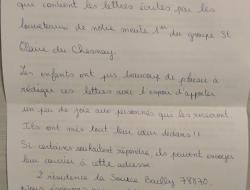 qui contient les lettres écrites par les
louveteaux de notre meute 1ère du groupe St
Claire du Chesnay.
Les enfants ont pris beaucoup de plaisir à
rédiger ces lettres avec l'espoir d'apporter
un peu de joie aux personnes qui les recevront.
Ils ont mis tout leur cœur dedans !!
Si certains souhaitent répondre ils peuvent envoyer
leur courrier à cette adresse
2 résidence la Source Bailly 78870.